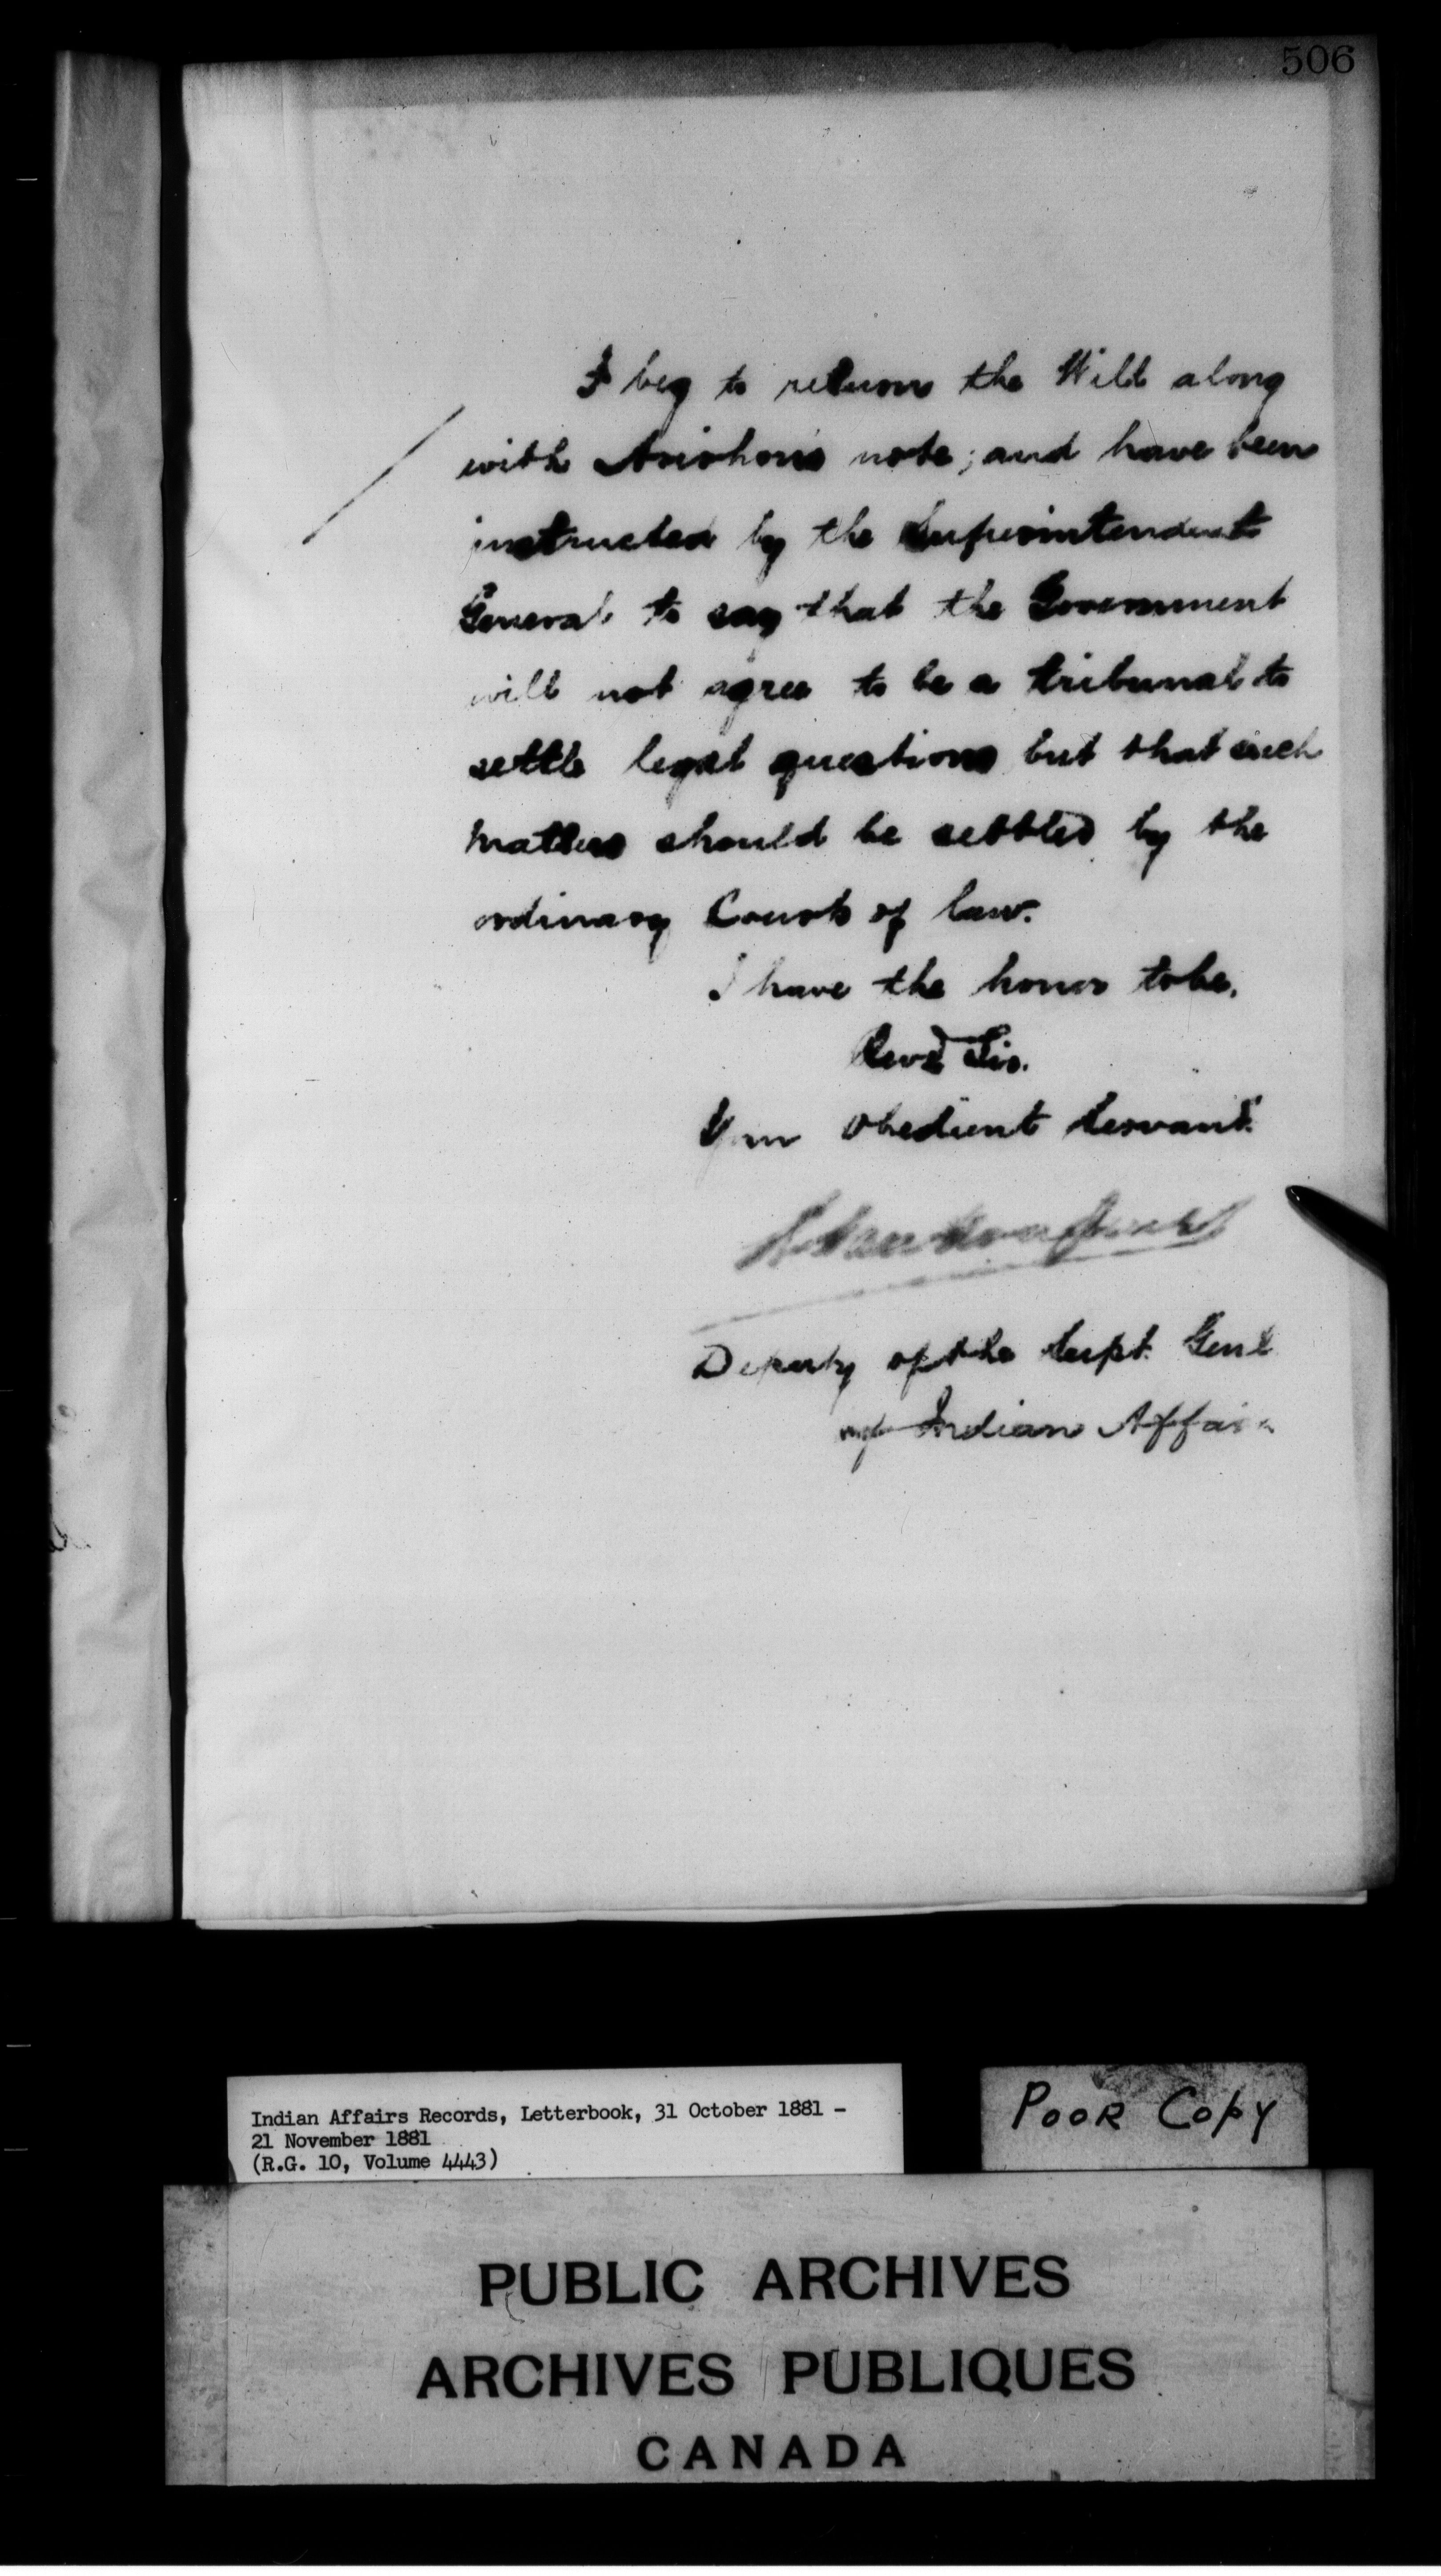 506
I beg to return the Will along
with Arirhon's note; and have been
instructed by the Superintendent
General to say that the Government
will not agree to be a tribunal to
settle legal questions but that such
matters should be settled by the
ordinary Courts of law.
I have the honor to be,
Revd Sir.
Your obedient Servant.
Deputy of the Supt. Genl
of Indian Affairs
Indian Affairs Records, Letterbook, 31 October 1881 –
21 November 1881
(R.G. 10, Volume 4443)
POOR COPY
PUBLIC ARCHIVES
ARCHIVES PUBLIQUES
CANADA